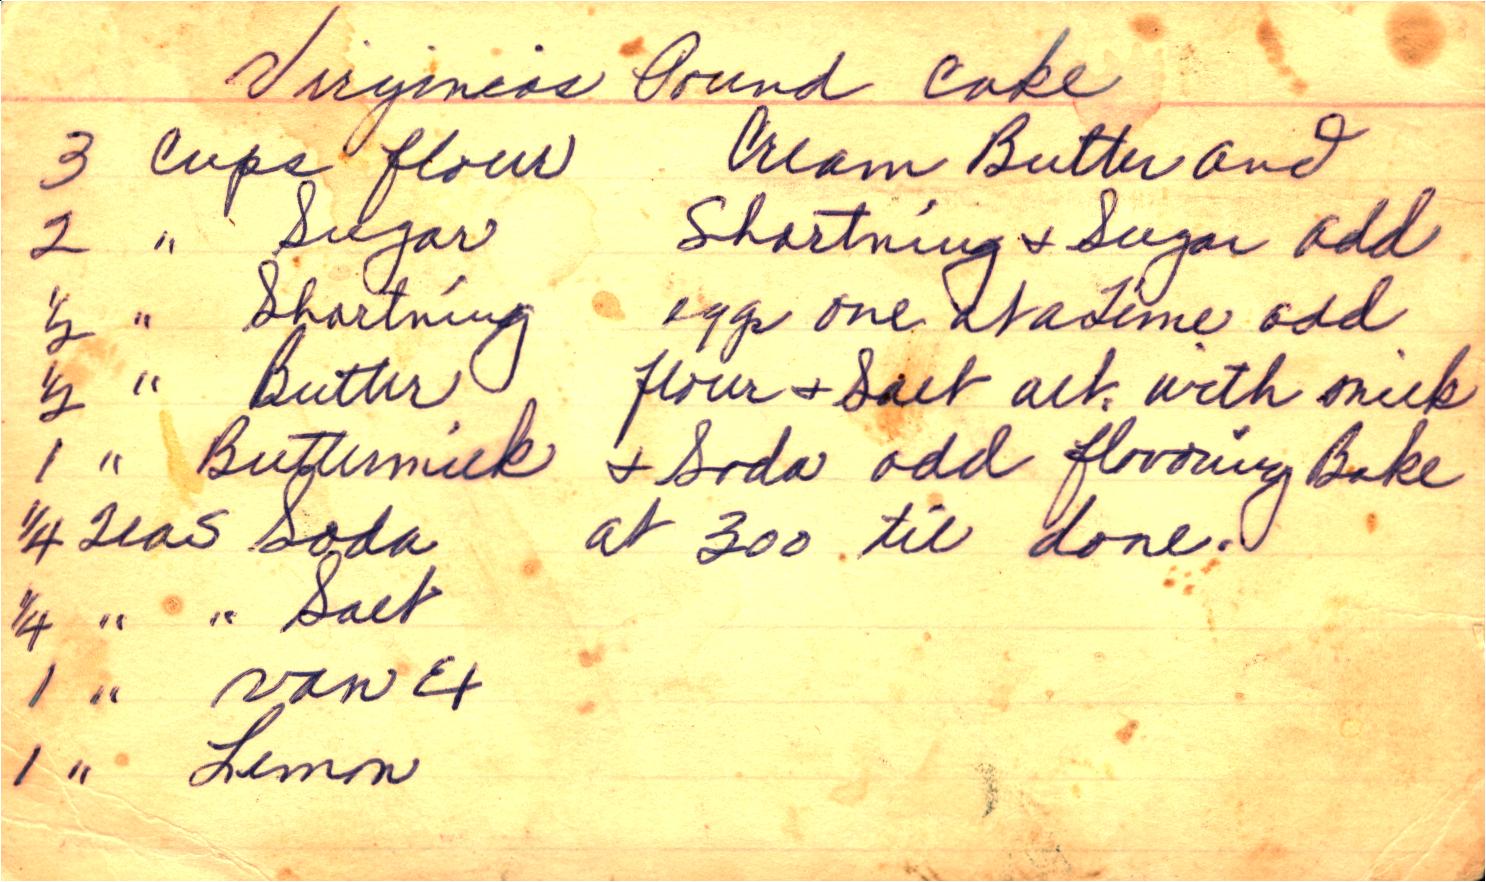 Virginias Pound Cake
3 Cups flour
2 " Sugar
½ " Shortning
½ " Butter
1 " Buttermilk
¼ Teas Soda
¼ " " Salt
1 " Van Ex
1 " Lemon
Cream Butter and
Shortning & Sugar add
eggs one at a time add
flour & Salt alt. with milk
& Soda add flovoring Bake
at 300 til done.